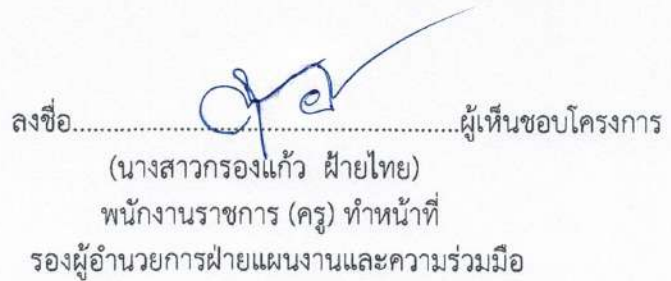 ลงชื่อ................................................ผู้เห็นชอบโครงการ
(นางสาวกรองแก้ว ฝ้ายไทย)
พนักงานราชการ (ครู) ทำหน้าที่
รองผู้อำนวยการฝ่ายแผนงานและความร่วมมือ